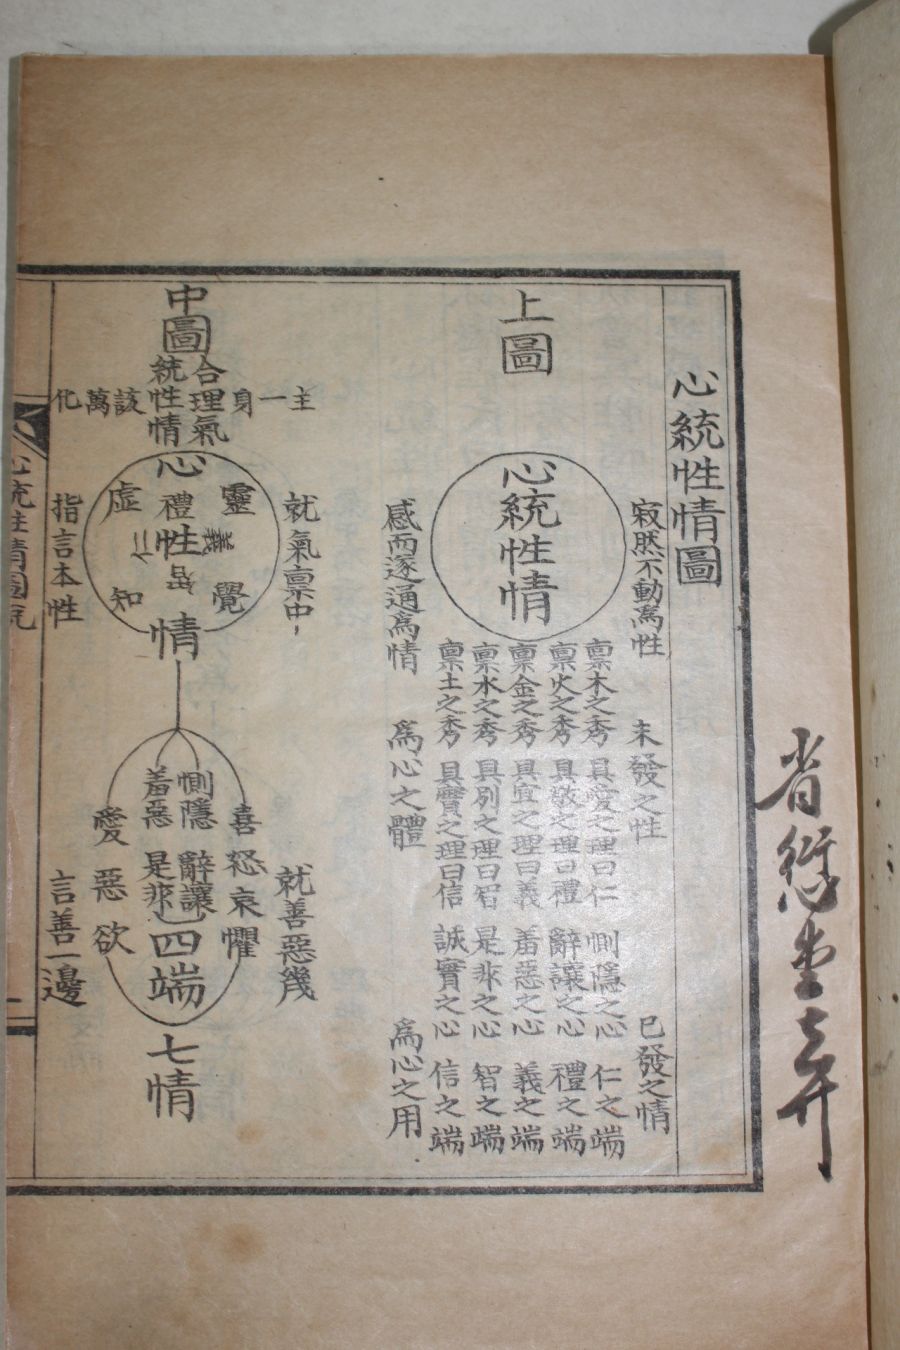 心統性情圖
上圖
心統性情
寂然不動爲性
未發之性
已發之情
稟木之秀 具愛之理曰仁 惻隱之心 仁之端
稟火之秀 具敬之理曰禮 辭讓之心 禮之端
稟金之秀 具宜之理曰義 羞惡之心 義之端
稟水之秀 具別之理曰智 是非之心 智之端
稟土之秀 具實之理曰信 誠實之心 信之端
感而遂通爲情
爲心之體
爲心之用
中圖
合理氣
統性情
主一身
該萬化
就氣稟中
心
靈
覺
虛
知
禮
性
仁
情
指言本性
惻隱
辭讓
羞惡
是非
四端
喜怒哀懼
愛惡欲
七情
就善惡幾
言善一邊
心統性情圖